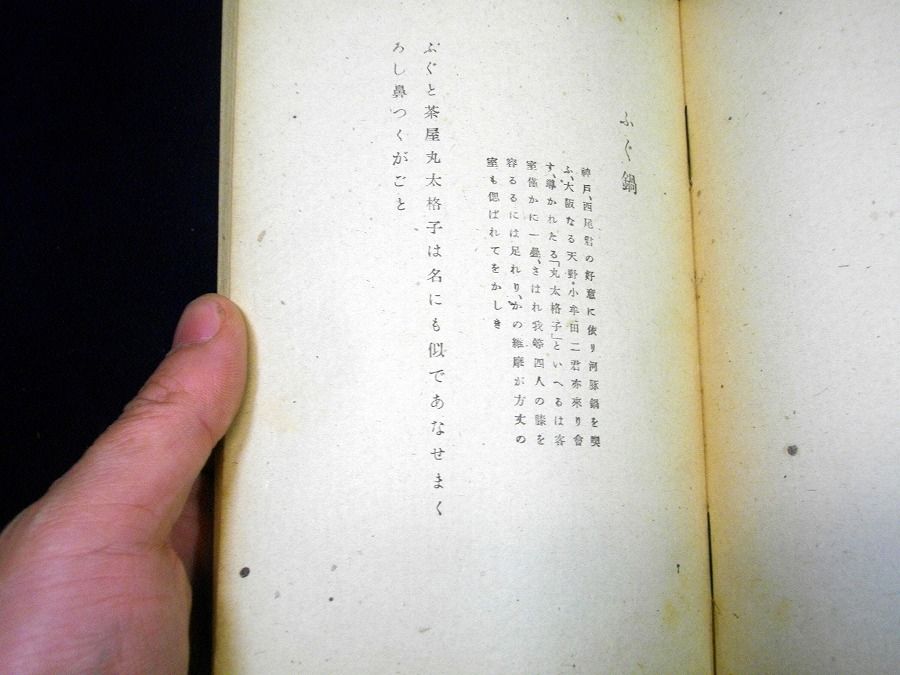 ふぐ鍋
神戸、西尾君の好意に依り河豚鍋を喫
ふ、大阪なる天野・小牟田二君亦來り會
す、導かれたる「丸太格子」といへるは客
室僅かに一疊、さはれ我等四人の膝を
容るるには足れり、かの維摩が方丈の
室も偲ばれてをかしき
ふぐと茶屋丸太格子は名にも似であなせまく
ろし鼻つくがごと